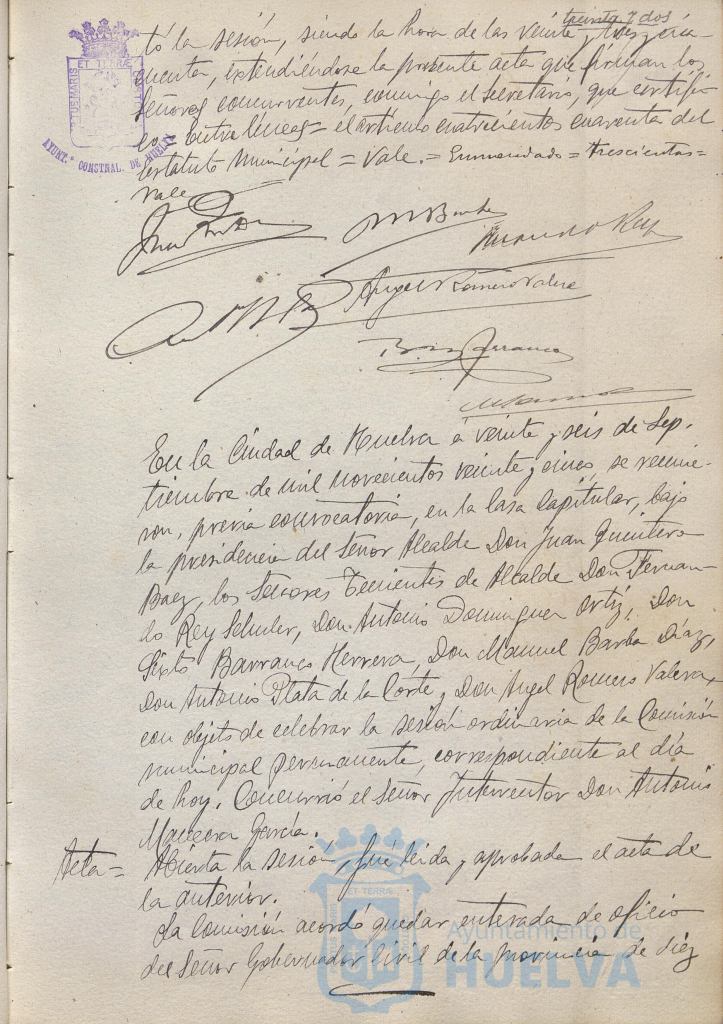 treinta y dos
tó la sesión, siendo la hora de las veinte y tres y cin-
cuenta, extendiéndose la presente acta que firman los
Señores concurrentes, conmigo el Secretario, que certifi-
co = Entre líneas = el artículo cuatrocientos cuarenta del
estatuto Municipal = Vale. = Enmendado = trescientas =
Vale
ET TERRAE
AYUNT.º CONSTNAL. DE HUELVA
M Barba
Fernando Rey
Angel Romero Valera
Barranco
En la Ciudad de Huelva á veinte y seis de Sep-
tiembre de mil novecientos veinte y cinco, se reunie-
ron, previa convocatoria, en la Casa Capitular, bajo
la presidencia del Señor Alcalde Don Juan Quintero
Baez, los Señores Tenientes de Alcalde Don Fernan-
do Rey Don Antonio Dominguez Ortiz, Don
Sixto Barranco Herrera, Don Manuel Barba Díaz,
Don Antonio Plata de la Corte y Don Angel Romero Valera,
con objeto de celebrar la sesión ordinaria de la Comisión
municipal permanente, correspondiente al día
de hoy. Concurrió el Señor Interventor Don Antonio
García.
Acta = Abierta la sesión, fué leida y aprobada el acta de
la anterior.
La Comisión acordó quedar enterada de oficio
del Señor Gobernador Civil de la provincia de diez
ET TERRAE
Ayuntamiento de
HUELVA